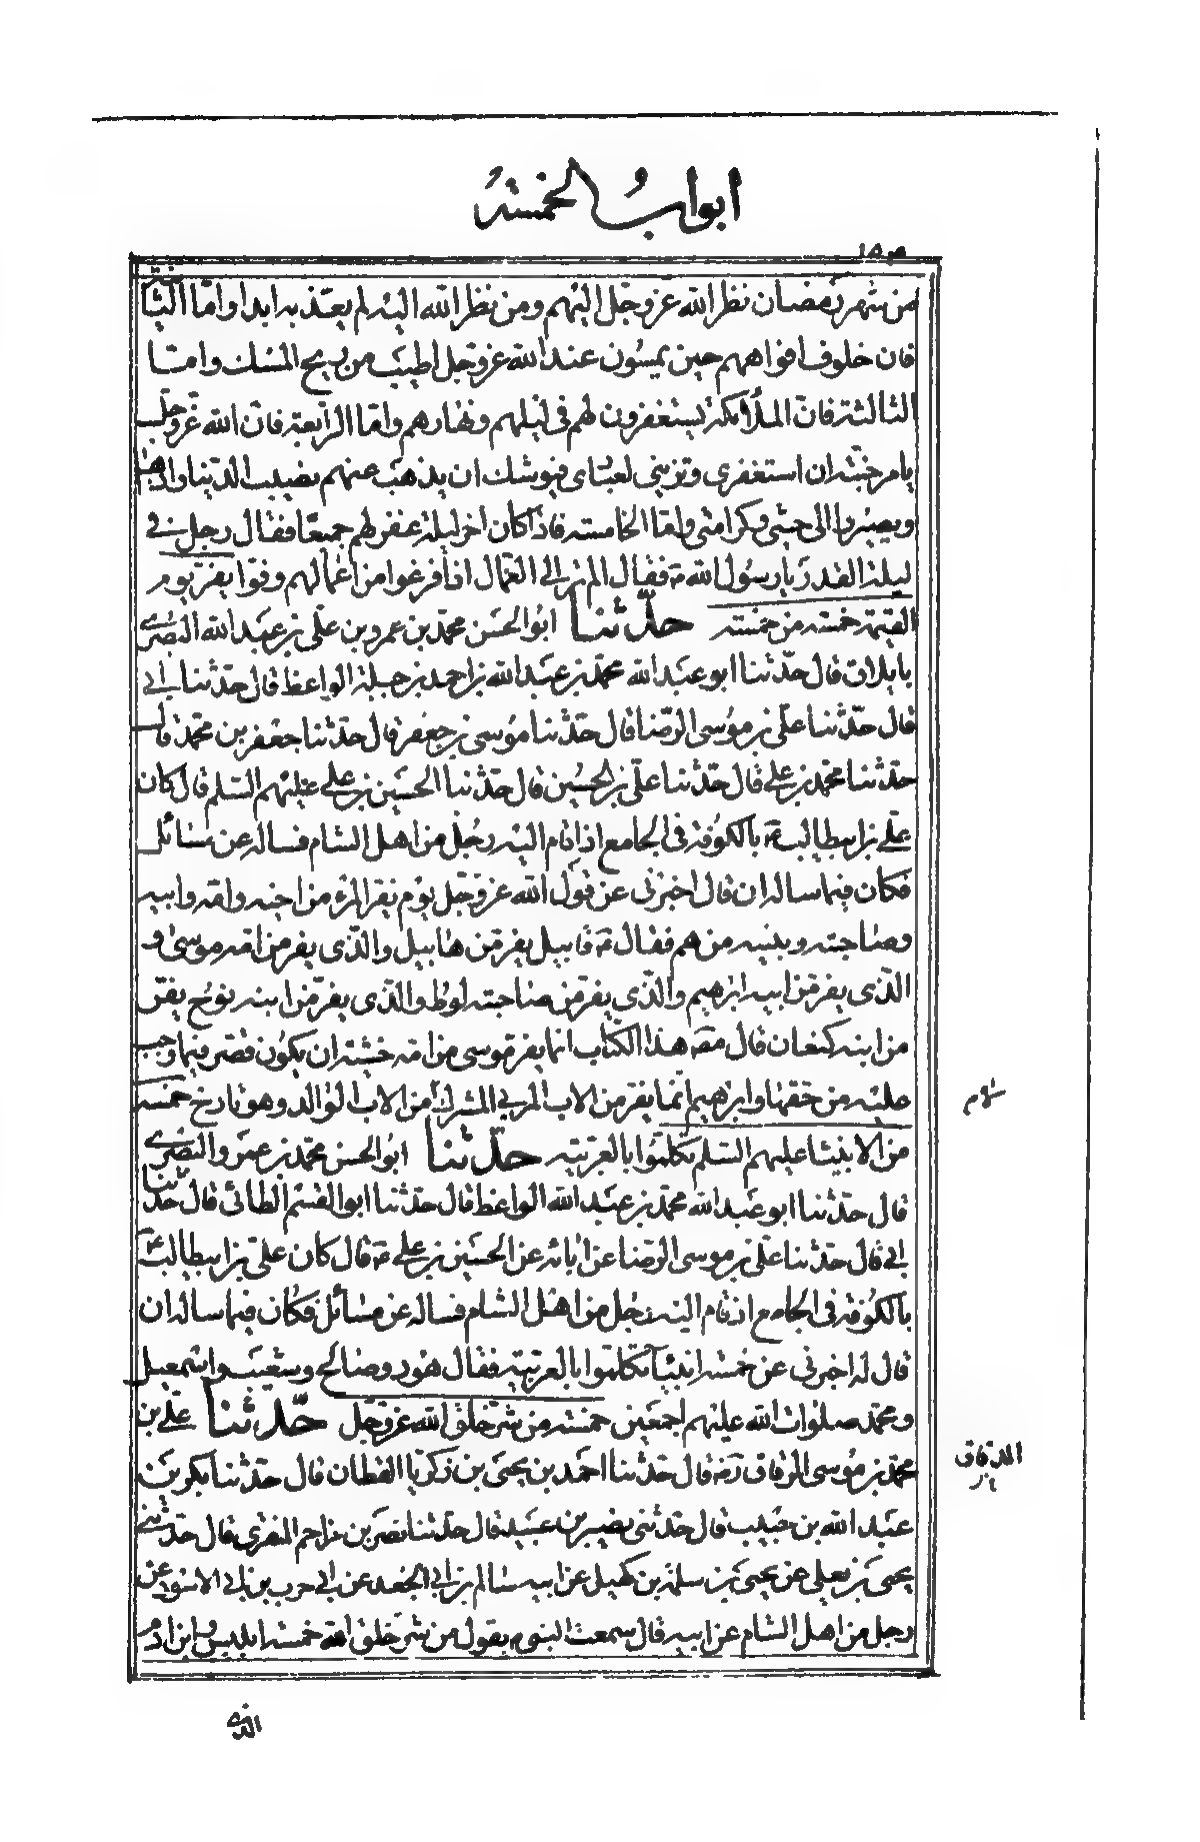 ابواب الخمسة
ص ١٥١
من شهر رمضان نظر الله عزوجل اليهم ومن نظر الله اليه لم يعذبه ابدا واما الثانية
فان خلوف افواههم حين يمسون عند الله عزوجل اطيب من ريح المسك واما
الثالثة فان الملائكة يستغفرون لهم فى ليلهم ونهارهم واما الرابعة فان الله عزوجل
يامر جنته ان استغفرى وتزينى لعبادى فيوشك ان يذهب عنهم نصب الدنيا واذاها
ويصيروا الى جنتى وكرامتى واما الخامسة فاذا كان اخر ليلة غفر لهم جميعا فقال رجل فى
ليلة القدر يا رسول الله فقال الم تر الى العمال اذا فرغوا من اعمالهم وفوا يفر يوم
القيمة خمسة من خمسة حدثنا ابو الحسن محمد بن عمرو بن على بن عبد الله البصرى
بايلاق قال حدثنا ابو عبد الله محمد بن عبد الله بن احمد بن جبلة الواعظ قال حدثنا ابى
قال حدثنا على بن موسى الرضا قال حدثنا موسى بن جعفر قال حدثنا جعفر بن محمد قال
حدثنا محمد بن على قال حدثنا على بن الحسين قال حدثنا الحسين بن على عليهم السلم قال كان
على بن ابيطالب ع بالكوفة فى الجامع اذا قام اليه رجل من اهل الشام فساله عن مسائل
فكان فيما ساله ان قال اخبرنى عن قول الله عزوجل يوم يفر المرء من اخيه وامه وابيه
وصاحبته وبنيه من هم فقال ع قابيل يفر من هابيل والذى يفر من امه موسى و
الذى يفر من ابيه ابرهيم والذى يفر من صاحبته لوط والذى يفر من ابنه نوح يفر
من ابنه كنعان قال مصه هذا الكتاب انما يفر موسى من امه خشية ان يكون قصر فيما وجب
عليه من حقها وابرهيم انما يفر من الاب المربى المشرك من الاب الوالد وهو تارخ خمسة
من الانبياء عليهم السلم تكلموا بالعربية حدثنا ابو الحسن محمد بن عمرو البصرى
قال حدثنا ابو عبد الله محمد بن عبد الله الواعظ قال حدثنا ابو القسم الطائى قال حدثنا
ابى قال حدثنا على بن موسى الرضا عن ابائه عن الحسين بن على ع قال كان على بن ابيطالب ع
بالكوفة فى الجامع اذ قام اليه رجل من اهل الشام فساله عن مسائل فكان فيما ساله ان
قال له اخبرنى عن خمسة انبياء تكلموا بالعربية فقال هود وصالح وشعيب واسمعيل
ومحمد صلوات الله عليهم اجمعين خمسة من شر خلق الله عزوجل حدثنا على بن
محمد بن موسى الرقاق رضه قال حدثنا احمد بن يحيى بن زكريا القطان قال حدثنا بكر بن
عبد الله بن حبيب قال حدثنى نصير بن عبيد قال حدثنا نصر بن مزاحم المنقرى قال حدثنى
يحيى بن يعلى عن يحيى بن سلمة بن كهيل عن ابيه سالم بن ابى الجعد عن ابى حرب بن ابى الاسود عن
رجل من اهل الشام عن ابيه قال سمعت النبى ص يقول من شر خلق الله خمسة ابليس وابن ادم
سلام
الدقاق
الذى